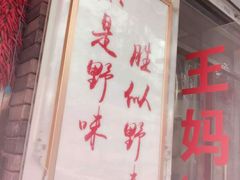 是野味
胜似野
王妈